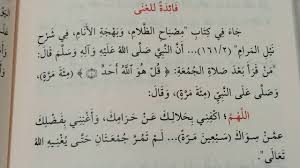 فَائِدَةٌ لِلْغِنَى
جَاءَ فِي كِتَابِ "مِصْبَاحِ الظَّلَامِ، وَبَهْجَةِ الْأَنَامِ، فِي شَرْحِ
نَيْلِ الْمَرَامِ" (١٦١/٢)... أَنَّ النَّبِيَّ صَلَّى اللهُ عَلَيْهِ وَآلِهِ وَسَلَّمَ قَالَ:
"مَنْ قَرَأَ بَعْدَ صَلَاةِ الْجُمُعَةِ: ﴿قُلْ هُوَ اللَّهُ أَحَدٌ ۝﴾ (مِئَةَ مَرَّةٍ)،
وَصَلَّى عَلَى النَّبِيِّ (مِئَةَ مَرَّةٍ)، وَقَالَ:
اللَّهُمَّ؛ اكْفِنِي بِحَلَالِكَ عَنْ حَرَامِكَ، وَأَغْنِنِي بِفَضْلِكَ
عَمَّنْ سِوَاكَ (سَبْعِينَ مَرَّةً)... لَمْ تَمُرَّ جُمُعَتَانِ حَتَّى يُغْنِيَهُ اللهُ
تَعَالَى"